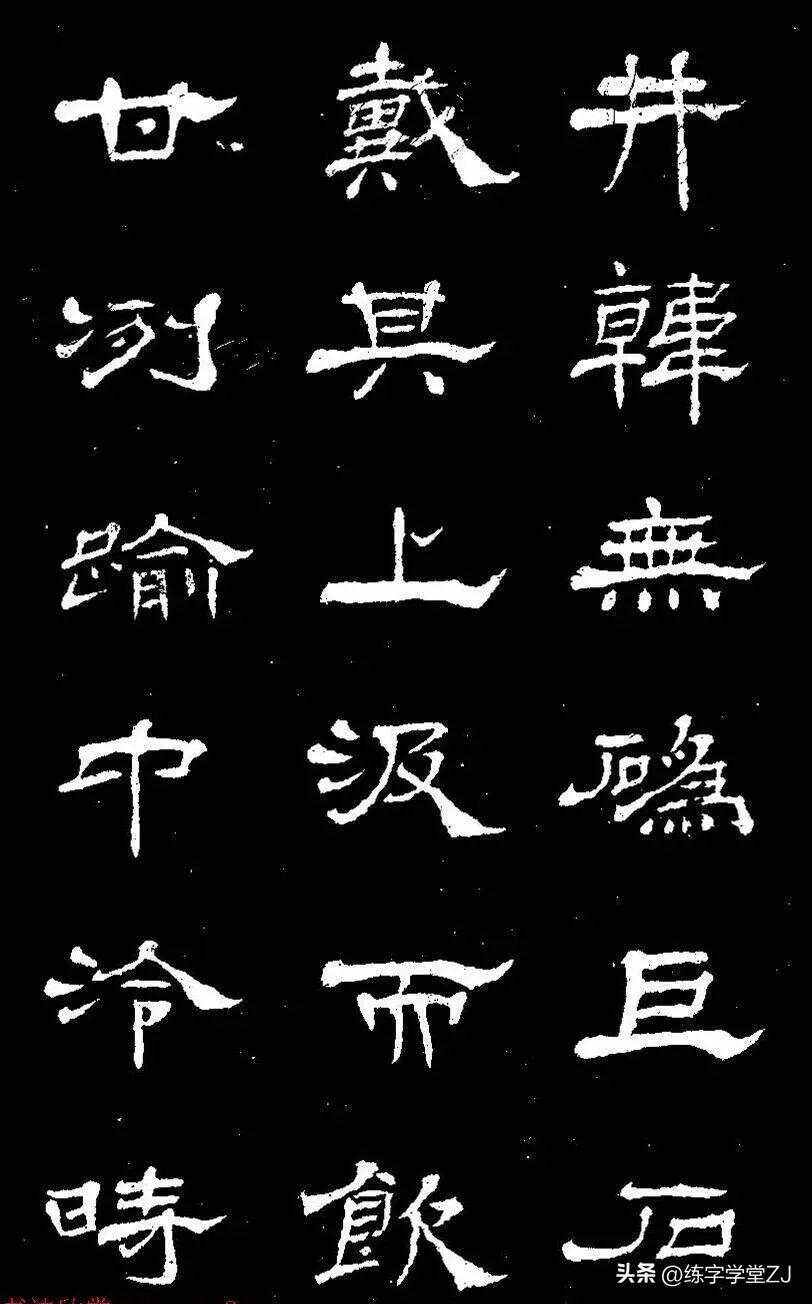 井韓無碼巨石
戴其上汲而飲
甘冽踰中泠時
头条 @练字学堂ZJ